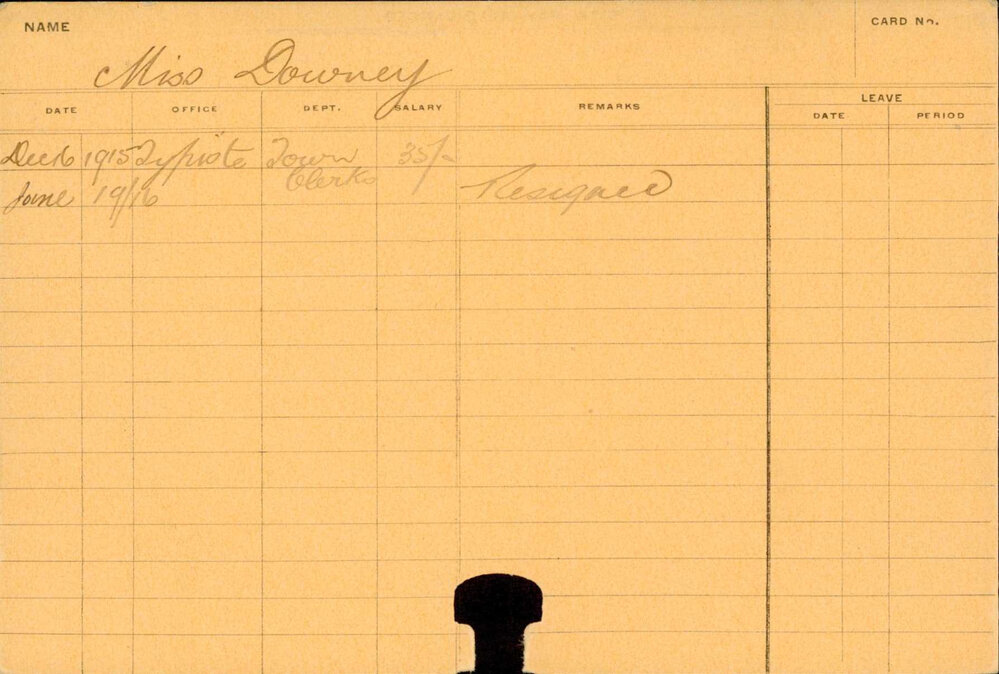 NAME
CARD No.
Miss Downey
DATE OFFICE DEPT. SALARY REMARKS LEAVE
DATE PERIOD
Dec 6 1915 Typiste Town Clerks 35/-
June 19/16 Resigned